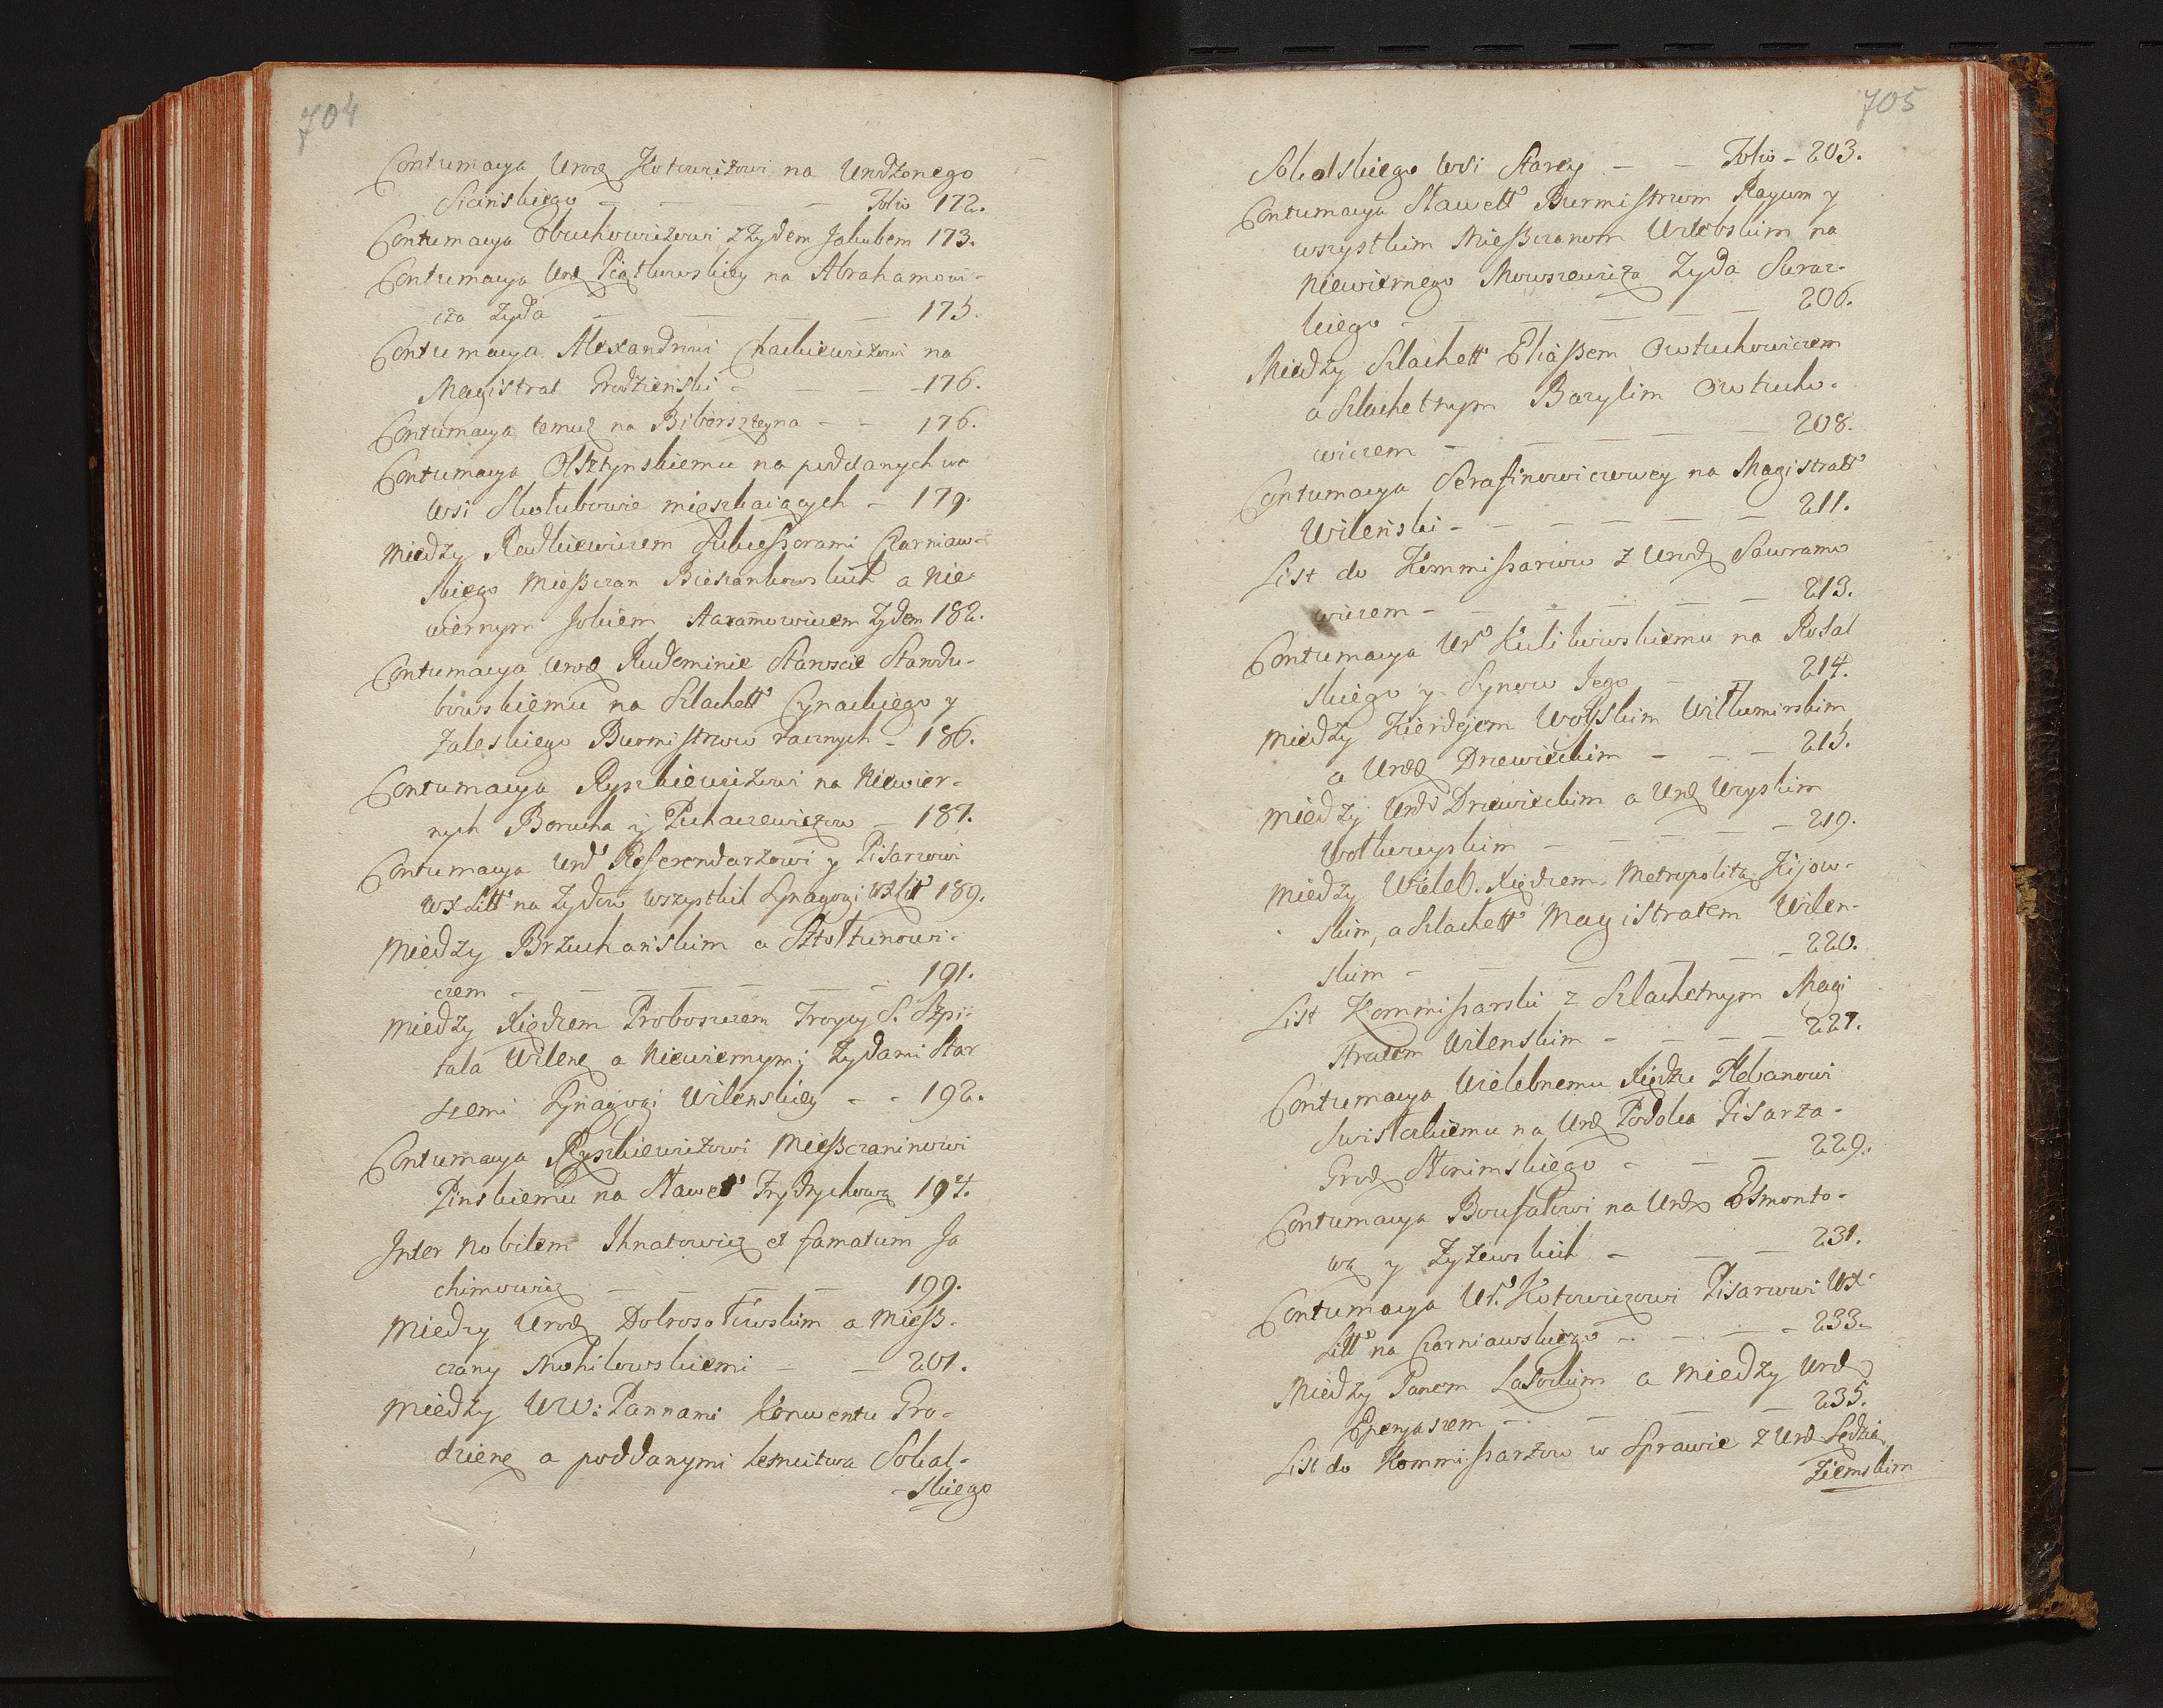 704
Contumacya Urodz Kotowiczowi na Urodzonego
Sicinskiego - - - Folio 172.
Contumacya Obuchowiczowi z Zydem Jakubem 173.
Contumacya Urodz Piątkowskiey na Abrahamowi-
cza Zyda - - - 175.
Contumacya Alexandrowi Chackiewiczowi na
Magistrat Grodzieński - - - 176.
Contumacya temuż na Biberszteyna - - 176.
Contumacya Olsztynskiemu na poddanych we
Wsi Skołubowie mięszkaiących - 179.
Między Radkiewiczem Sukcessorami Czarniaw-
skiego Mieszczan Bieżankowskich a Nie-
wiernym Jokiem Aaramowiczem Zydem 182.
Contumacya Urodz Rudominie Staroscie Starodu-
bowskiemu na Szlachett Cynackiego y
Zaleskiego Burmistrzow racznych - 186.
Contumacya Ryszkiewiczowi na Niewier-
nych Borucha y Puhaczewiczow - 187.
Contumacya Urd Referendarzowi y Pisarzowi
WXLitt na Zydow wszystkich Synagogi WXLitt 189.
Między Brzuchańskim a Sztołtunowi-
czem - - - - - 191.
Między Xiędzem Proboszczem Troycy S. Szpi-
tala Wilenz a Niewiernymi Zydami Star
szemi Synagogi Wilenskiey - - 192.
Contumacya Ryszkiewiczowi Mieszczaninowi
Pinskiemu na Sławet Frydrychową 197.
Inter Nobilem Ihnatowicz et famatum Ja
chimowicz - - - - 199.
Między Urodz Dobrosołowskim a Miesz-
czany Mohilowskiemi - - 201.
Między WW: Pannami Konwentu Gro-
dzienz a poddanymi Lesnictwa Sokal-
-skiego
705
Sokolskiego Wsi Starey - - Folio - 203.
Contumacya Sławett Burmistrzom Raycom y
wszystkim Mieszczanom Witebskim na
Niewiernego Mowszewicza Zyda Suraz-
kiego - - - - - 206.
Między Szlachett Eliaszem Owtuchowiczem
a Szlachetnym Bazylim Owtucho-
wiczem - - - - - 208.
Contumacya Serafinowiczowey na Magistratt
Wileński - - - - - 211.
List do Kommissarzow z Urodz Sawramo
wiczem - - - - - 213.
Contumacya Ur Kulikowskiemu na Rosal
skiego y Synow Jego - - 214.
Między Kierdejem Wołskim Wilkumirskim
a Urodz Drewieckim - - - 215.
Między Urdz Drewieckim a Urdz Uryskim
Wołkowyskim - - - - - 219.
Między Wieleb. Xiędzem Metropolitą Kijow-
skim, a Szlachett Magistratem Wilen-
skim - - - - - 220.
List Kommissarski z Szlachetnym Magi
stratem Wilenskim - - - - 227.
Contumacya Wielebnemu Xiędzu Plebanowi
Swisłockiemu na Urdz Podoba Pisarza-
Grodz Słonimskiego - - - 229.
Contumacya Boufałowi na Urdz Esmonto-
wą y Zyżewskich - - - 231.
Contumacya Ur. Kotowiczowi Pisarzowi WX
Litt na Czarniawskiego - - - - 233.
Między Panem Lasockim a Miedzy Urdz
Eperyaszem - - - - 235.
List do Kommissarzow w Sprawie z Urdz Sędzią
Ziemskim